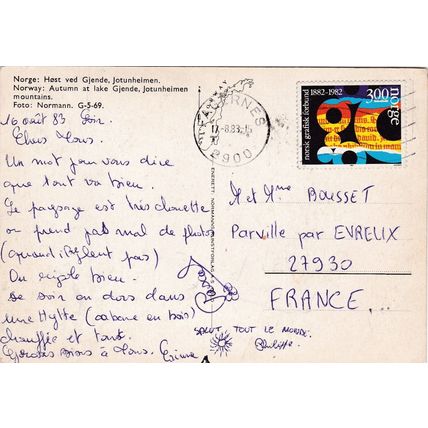 Norge: Høst ved Gjende, Jotunheimen.
Norway: Autumn at lake Gjende, Jotunheimen
mountains.
Foto: Normann. G-5-69.
10 août 83 Soir
Chers Tous.
Un mot pour vous dire
que tout va bien.
Le paysage est très chouette
on prend pas mal de photos
(quand pleut pas)
On rigole bien.
Ce soir on dors dans
une Hytte (cabane en bois)
chauffée et tout.
Grosses bises à Tous.
SALUT TOUT LE MONDE.
Philippe
norsk grafisk forbund 1882-1982
300
norge
2900
M et Mme BOUSSET
Parville par EVREUX
27930
FRANCE...